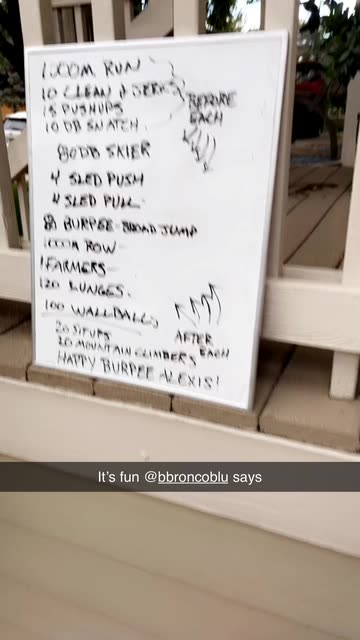 1000M RUN
10 CLEAN & JERKS
15 PUSHUPS
10 DB SNATCH
BEFORE
EACH
80 DB SKIER
4 SLED PUSH
4 SLED PULL
80 BURPEE BROAD JUMP
1000M ROW
1 FARMERS
120 LUNGES
100 WALLBALLS
20 SITUPS
20 MOUNTAIN CLIMBERS
AFTER
EACH
HAPPY BURPEE ALEXIS!
It's fun @bbroncoblu says